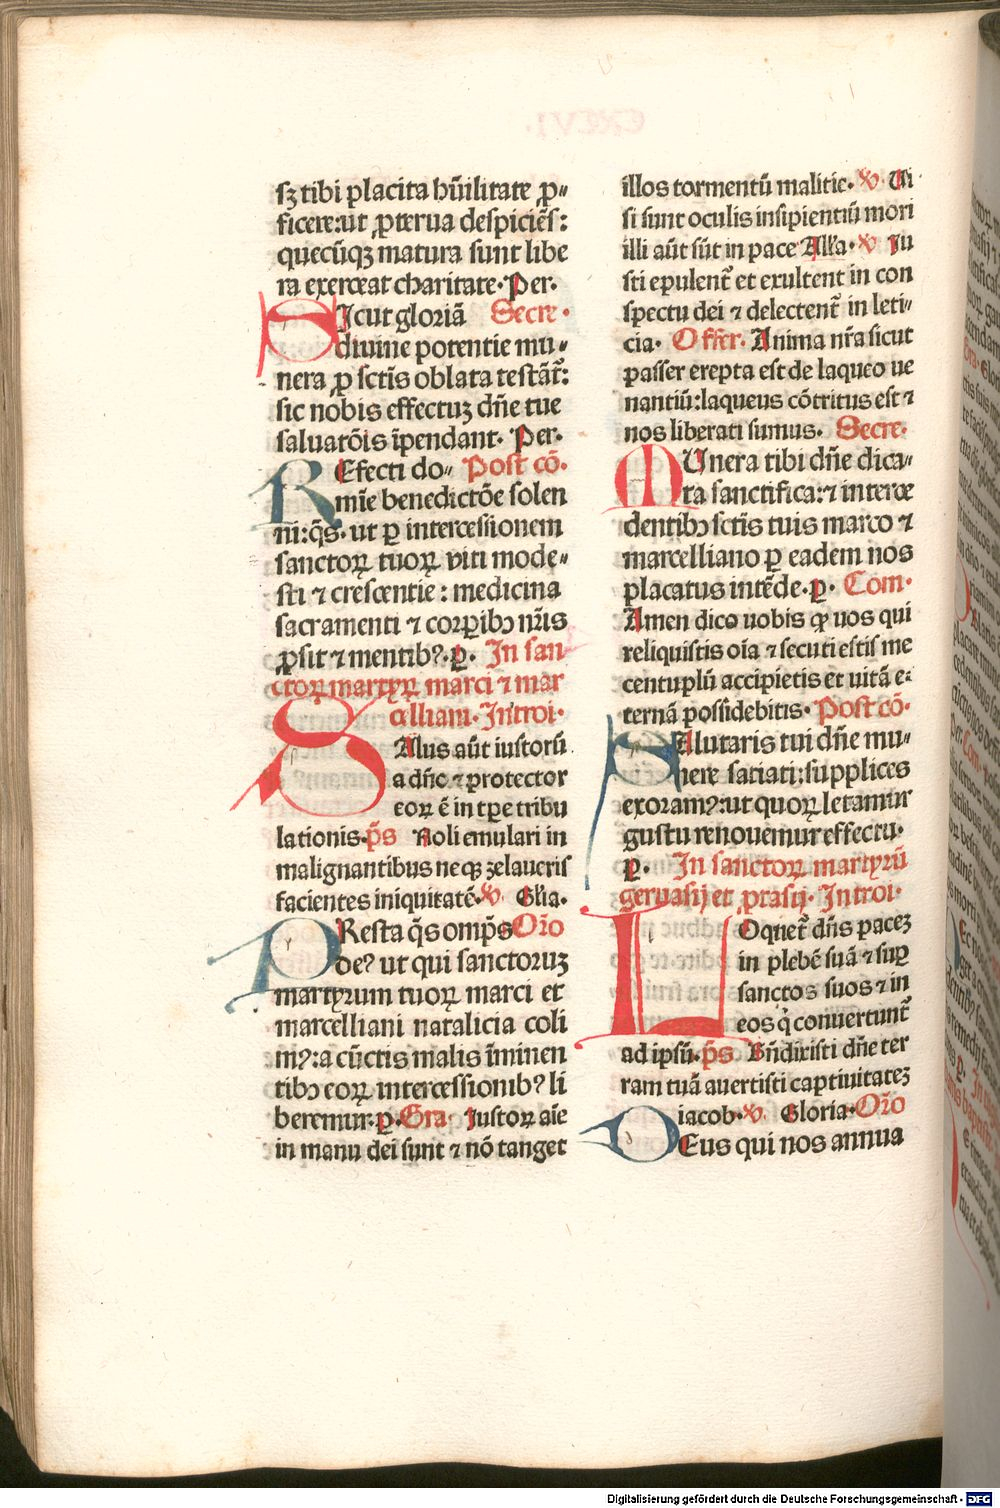 sꝫ tibi placita hũilitate ꝓ⸗
ficere:ut ꝓterua despiciẽs:
quecũqꝫ matura sunt libe
ra exerceat charitate. Per.
SIcut gloriã Secre.
diuine potentie mu⸗
nera ꝓ sctĩs oblata testãt̃:
sic nobis effectuꝫ dñe tue
saluatõis ĩpendant. Per.
REfecti do⸗ Post cõ.
mĩe benedictõe solen
ni:q̃s. ut ꝑ intercessionem
sanctoꝝ tuoꝝ viti mode⸗
sti ⁊ crescentie: medicina
sacramenti ⁊ corꝑibꝰ nr̃is
ꝓsit ⁊ mentib?. ꝑ. In san
ctoꝝ martyꝝ marci ⁊ mar
celliani. Introi.
SAlus aũt iustorũ
a dño ⁊ protector
eoꝝ ẽ in tꝑe tribu
lationis. p̃s Noli emulari in
malignantibus neqꝫ zelaueris
facientes iniquitatẽ. ℣. Glia.
PResta q̃s omp̃s Oro
de? ut qui sanctoruꝫ
martyrum tuoꝝ marci et
marcelliani natalicia coli
m?:a cũctis malis ĩminen
tibꝰ eoꝝ intercessionib? li
beremur. ꝑ. Gra. Iustoꝝ aĩe
in manu dei sunt ⁊ nõ tanget
illos tormentũ malitie. ℣. Ui
si sunt oculis insipientiũ mori
illi aũt sũt in pace Alla. ℣. Iu
sti epulent̃ et exultent in con
spectu dei ⁊ delectent̃ in leti⸗
cia. Offer. Anima nr̃a sicut
passer erepta est de laqueo ue
nantiũ:laqueus cõtritus est ⁊
nos liberati sumus. Secre.
MUnera tibi dñe dica⸗
ta sanctifica:⁊ interce
dentibꝰ sctĩs tuis marco ⁊
marcelliano ꝑ eadem nos
placatus intẽde. ꝑ. Com.
Amen dico uobis ꝙ uos qui
reliquistis oĩa ⁊ secuti estis me
centuplũ accipietis et uitã e⸗
ternã possidebitis. Post cõ.
SAlutaris tui dñe mu⸗
nere satiati;supplices
exoram?:ut quoꝝ letamur
gustu renouemur effectu.
ꝑ. In sanctoꝝ martyrũ
geruasij et ꝓtasij. Introi.
LOquet̃ dñs paceꝫ
in plebẽ suã ⁊ suꝑ
sanctos suos ⁊ in
eos q̇ conuertunt̃
ad ipsũ. p̃s Bñdixisti dñe ter
ram tuã auertisti captiuitateꝫ
iacob. ℣. Gloria. Oro
DEus qui nos annua
Digitalisierung gefördert durch die Deutsche Forschungsgemeinschaft - DFG